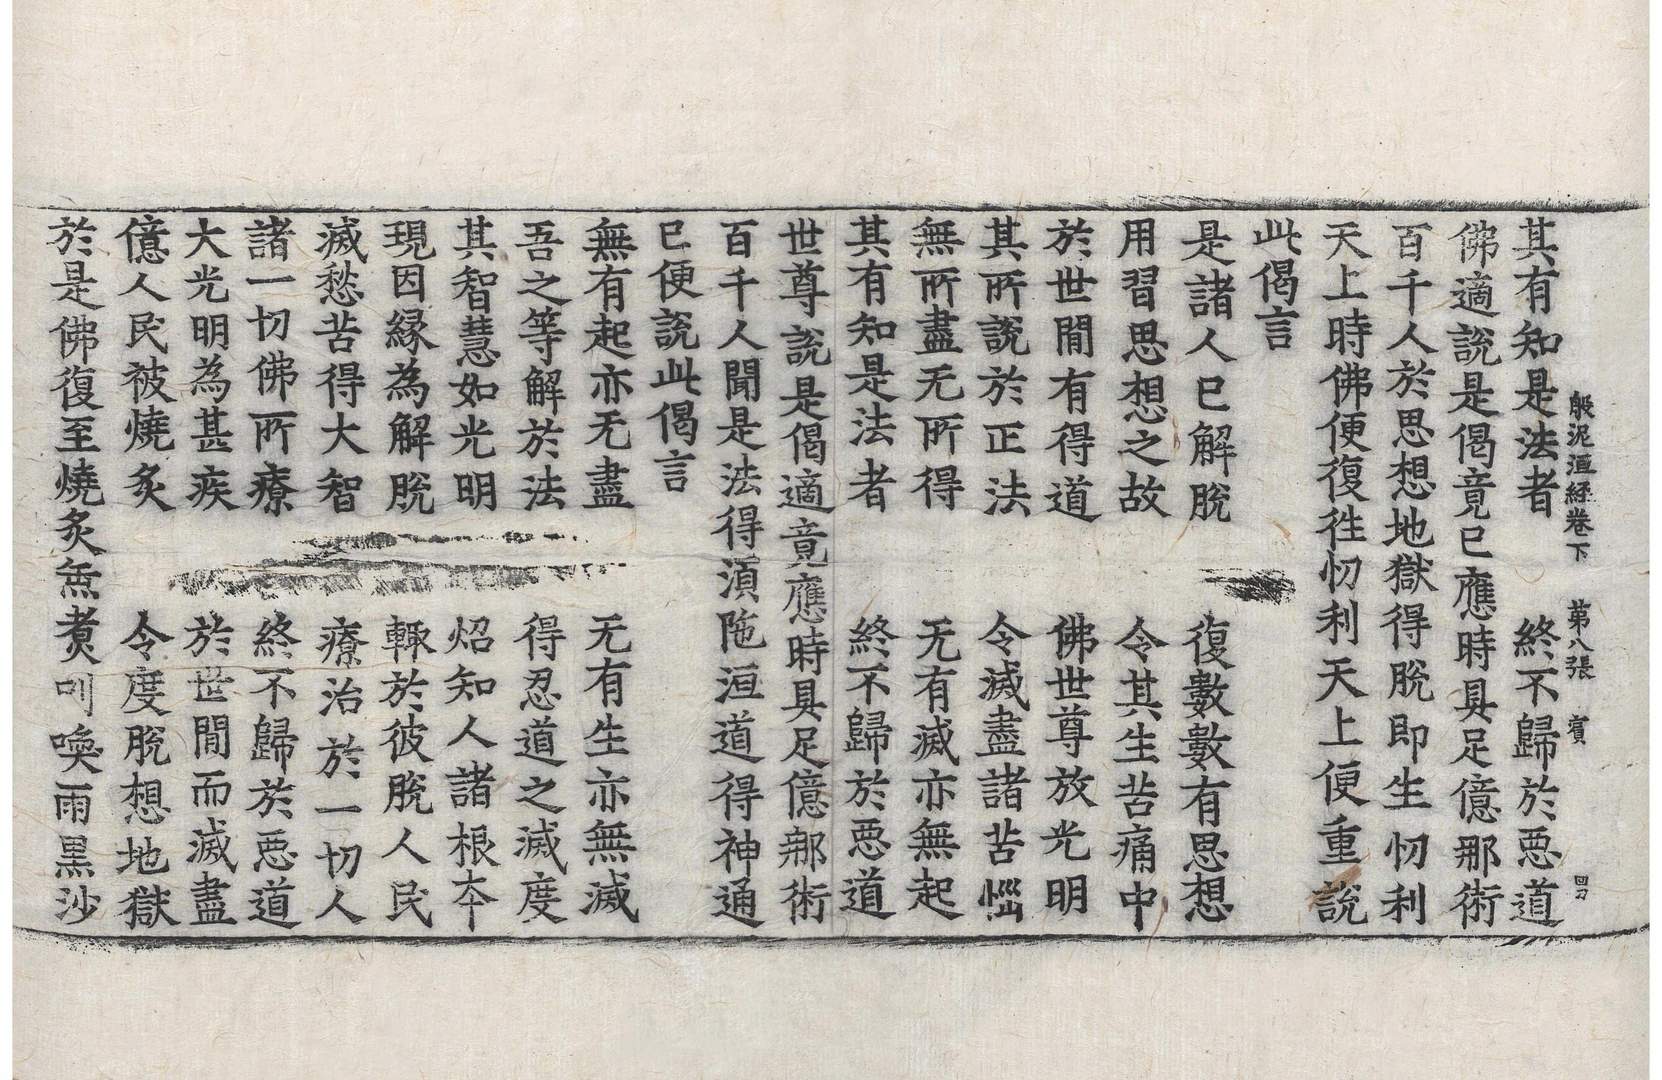 般泥洹經卷下 第八張 賓 囬刀
其有知是法者 終不歸於惡道
佛適說是偈竟已應時具足億那術
百千人於思想地獄得脫即生忉利
天上時佛便復往忉利天上便重說
此偈言
是諸人已解脫 復數數有思想
用習思想之故 令其生苦痛中
於世閒有得道 佛世尊放光明
其所說於正法 令滅盡諸苦惱
無所盡无所得 无有滅亦無起
其有知是法者 終不歸於惡道
世尊說是偈適竟應時具足億那術
百千人聞是法得湏陁洹道得神通
已便說此偈言
無有起亦无盡 无有生亦無滅
吾之等解於法 得忍道之滅度
其智慧如光明 炤知人諸根夲
現因緣為解脫 輙於彼脫人民
滅愁苦得大智 療治於一切人
諸一切佛所療 終不歸於惡道
大光明為甚疾 於世閒而滅盡
億人民被燒炙 令度脫想地獄
於是佛復至燒炙㷊煑叫喚雨黑沙